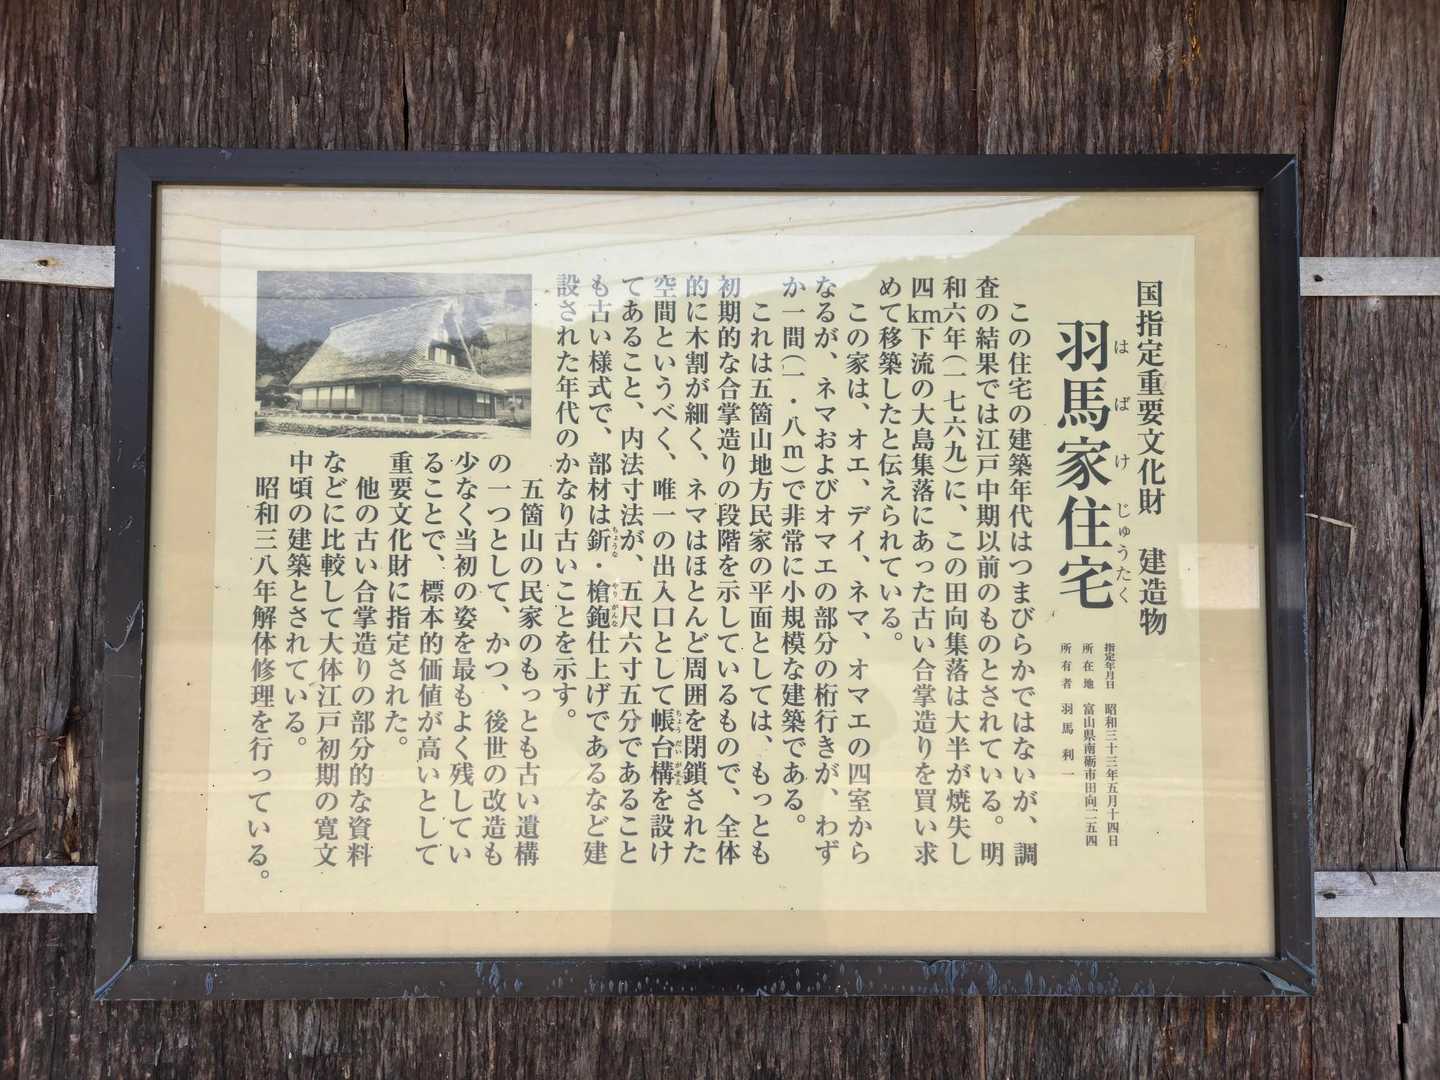 国指定重要文化財　建造物
羽馬家住宅
はばけじゅうたく
指定年月日　昭和三十三年五月十四日
所在地　富山県南砺市田向二五四
所有者　羽馬利一
この住宅の建築年代はつまびらかではないが、調
査の結果では江戸中期以前のものとされている。明
和六年(一七六九)に、この田向集落は大半が焼失し
四km下流の大島集落にあった古い合掌造りを買い求
めて移築したと伝えられている。
この家は、オエ、デイ、ネマ、オマエの四室から
なるが、ネマおよびオマエの部分の桁行きが、わず
か一間(一・八m)で非常に小規模な建築である。
これは五箇山地方民家の平面としては、もっとも
初期的な合掌造りの段階を示しているもので、全体
的に木割が細く、ネマはほとんど周囲を閉鎖された
空間というべく、唯一の出入口として帳台構を設け
ちょうだいがまえ
てあること、内法寸法が、五尺六寸五分であること
も古い様式で、部材は釿・槍鉋仕上げであるなど建
ちょうな　やりがんな
設された年代のかなり古いことを示す。
五箇山の民家のもっとも古い遺構
の一つとして、かつ、後世の改造も
少なく当初の姿を最もよく残してい
ることで、標本的価値が高いとして
重要文化財に指定された。
他の古い合掌造りの部分的な資料
などに比較して大体江戸初期の寛文
中頃の建築とされている。
昭和三八年解体修理を行っている。